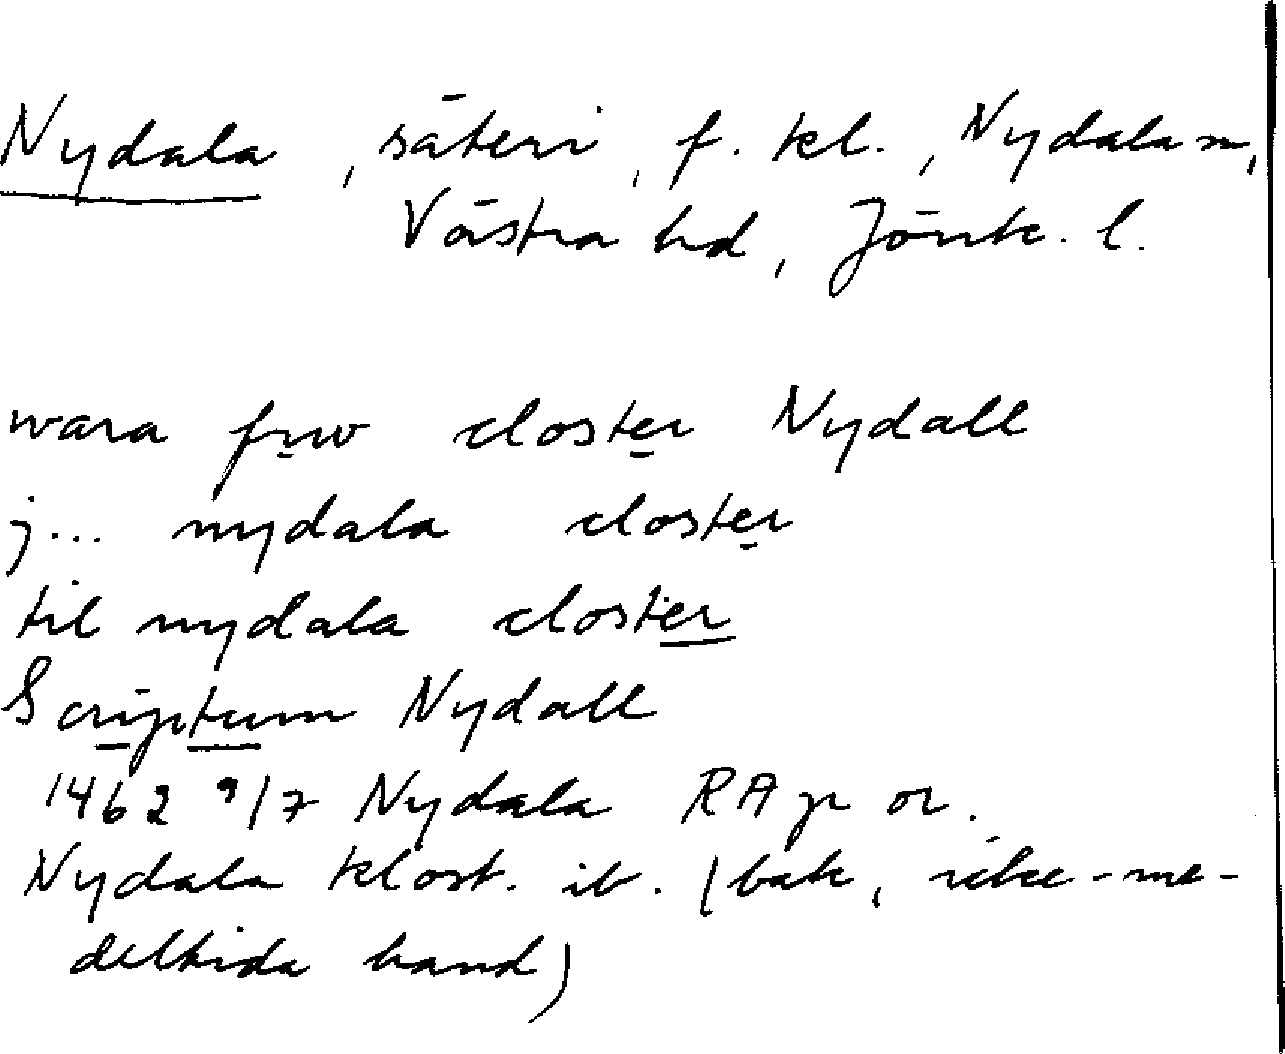 Nydala, säteri, f. kl., Nydala sn,
Västra hd, Jönk. l.
wara fruw closter Nydall
j... nydala closter
til nydala closter
Scriptum Nydall
1462 9/7 Nydala RA p or.
Nydala klost. ib. (bak, icke-me-
deltida hand)